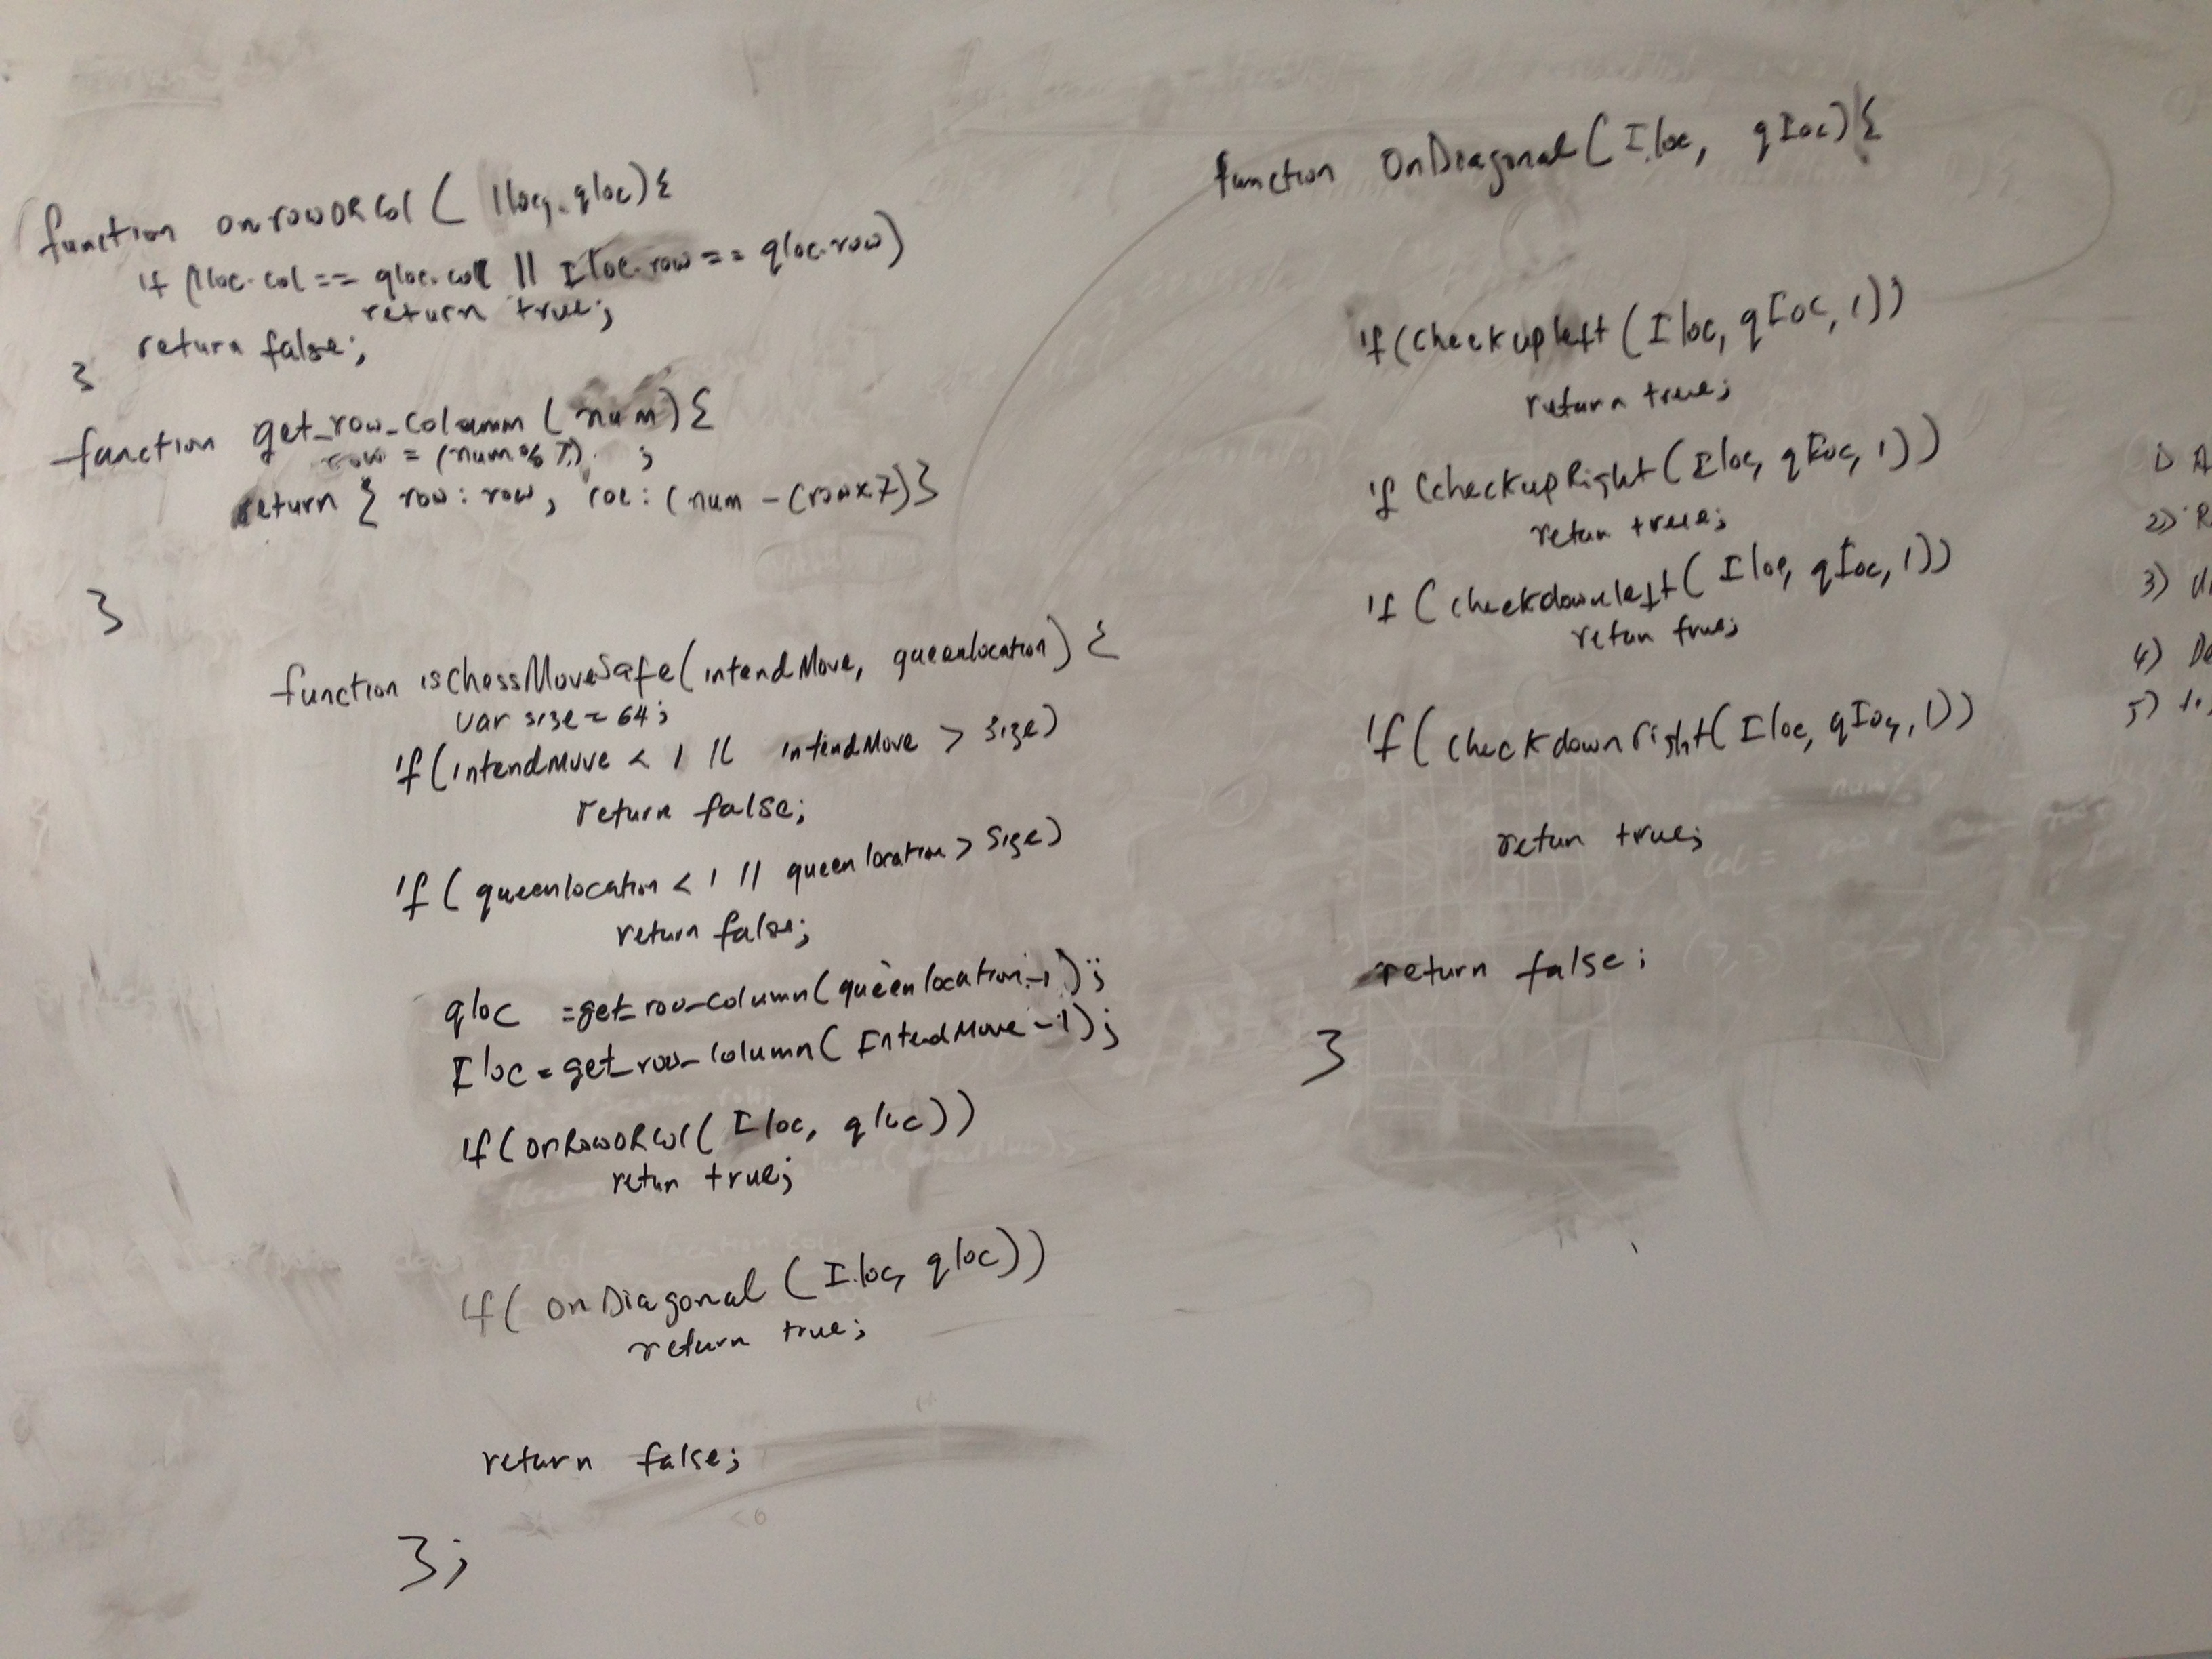 function onrowORCol ( Iloc, qloc) {
if (Iloc.col == qloc.col || Iloc.row == qloc.row)
return true;
return false;
}
function get_row_column (num) {
row = (num % 7) ;
return { row: row, col: (num - (row x 7) }
}
function isChessMoveSafe(intendMove, queenlocation) {
var size = 64;
if(intendMove < 1 || intendMove > size)
return false;
if( queenlocation < 1 || queenlocation > size)
return false;
qloc = get_row_column(queenlocation-1);
Iloc = get_row_column( IntendMove -1);
if(onRowORCol( Iloc, qloc))
retun true;
if( onDiagonal ( Iloc, qloc))
return true;
return false;
};
function OnDiagonal ( Iloc, qIoc) {
if(checkupleft ( Iloc, qIoc, 1))
return true;
if (checkupRight( Iloc, qIoc, 1))
retun true;
if (checkdownleft( Iloc, qIoc, 1))
retun true;
if( checkdownright( Iloc, qIoc, 1))
retun true;
return false;
}
1) A
2) R
3)
4) De
5)